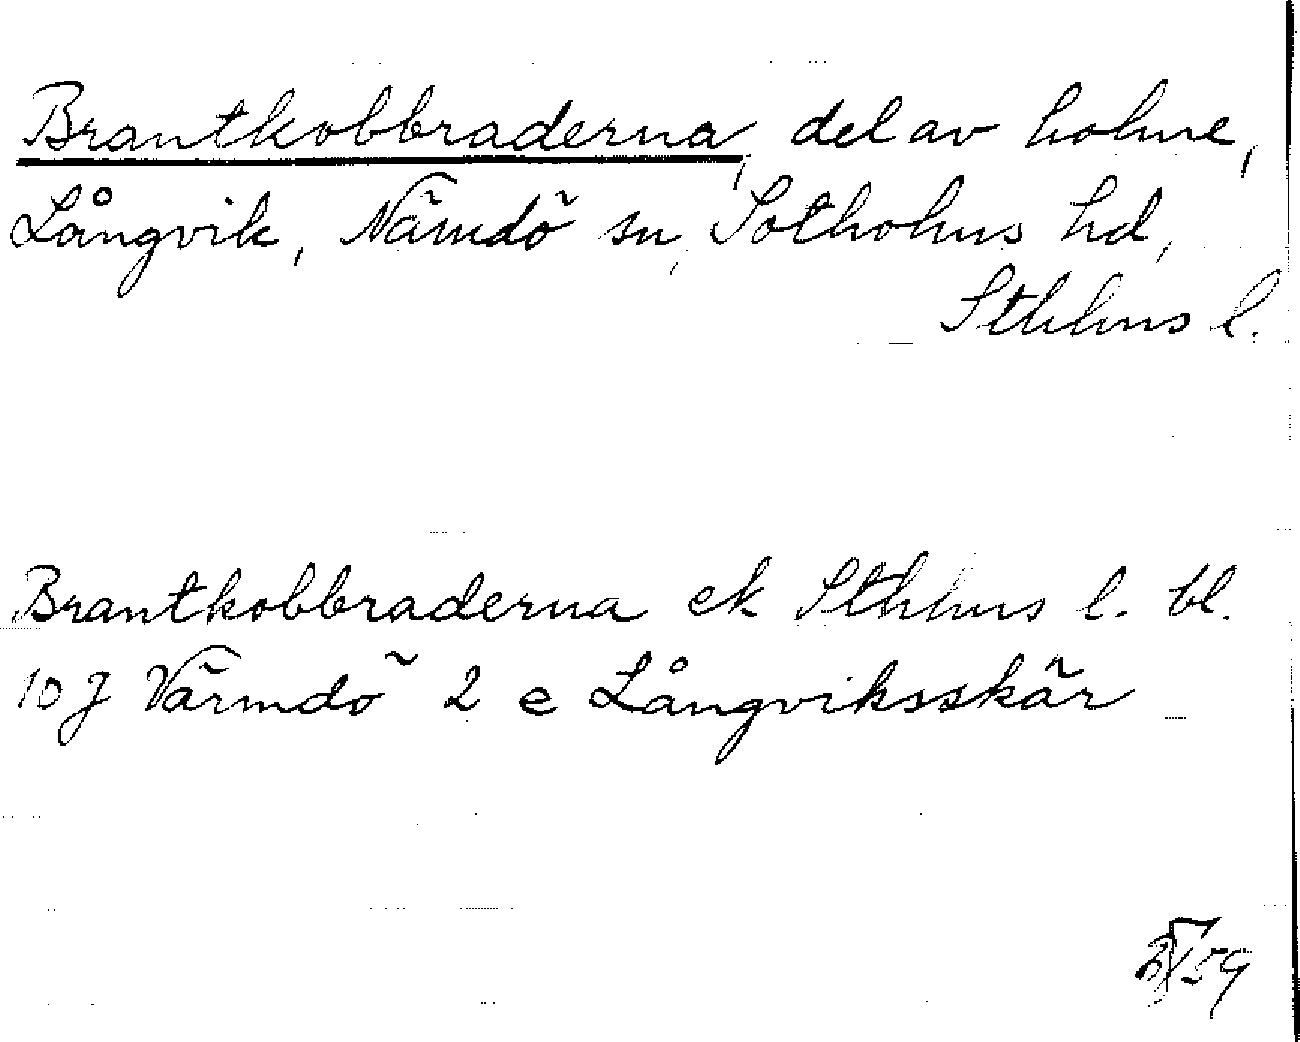 Brantkobbraderna, del av holme,
Långvik, Nämdö sn, Sotholms hd,
Sthlms l.
Brantkobbraderna ek Sthlms l. bl.
10 J Värmdö 2 e Långviksskär